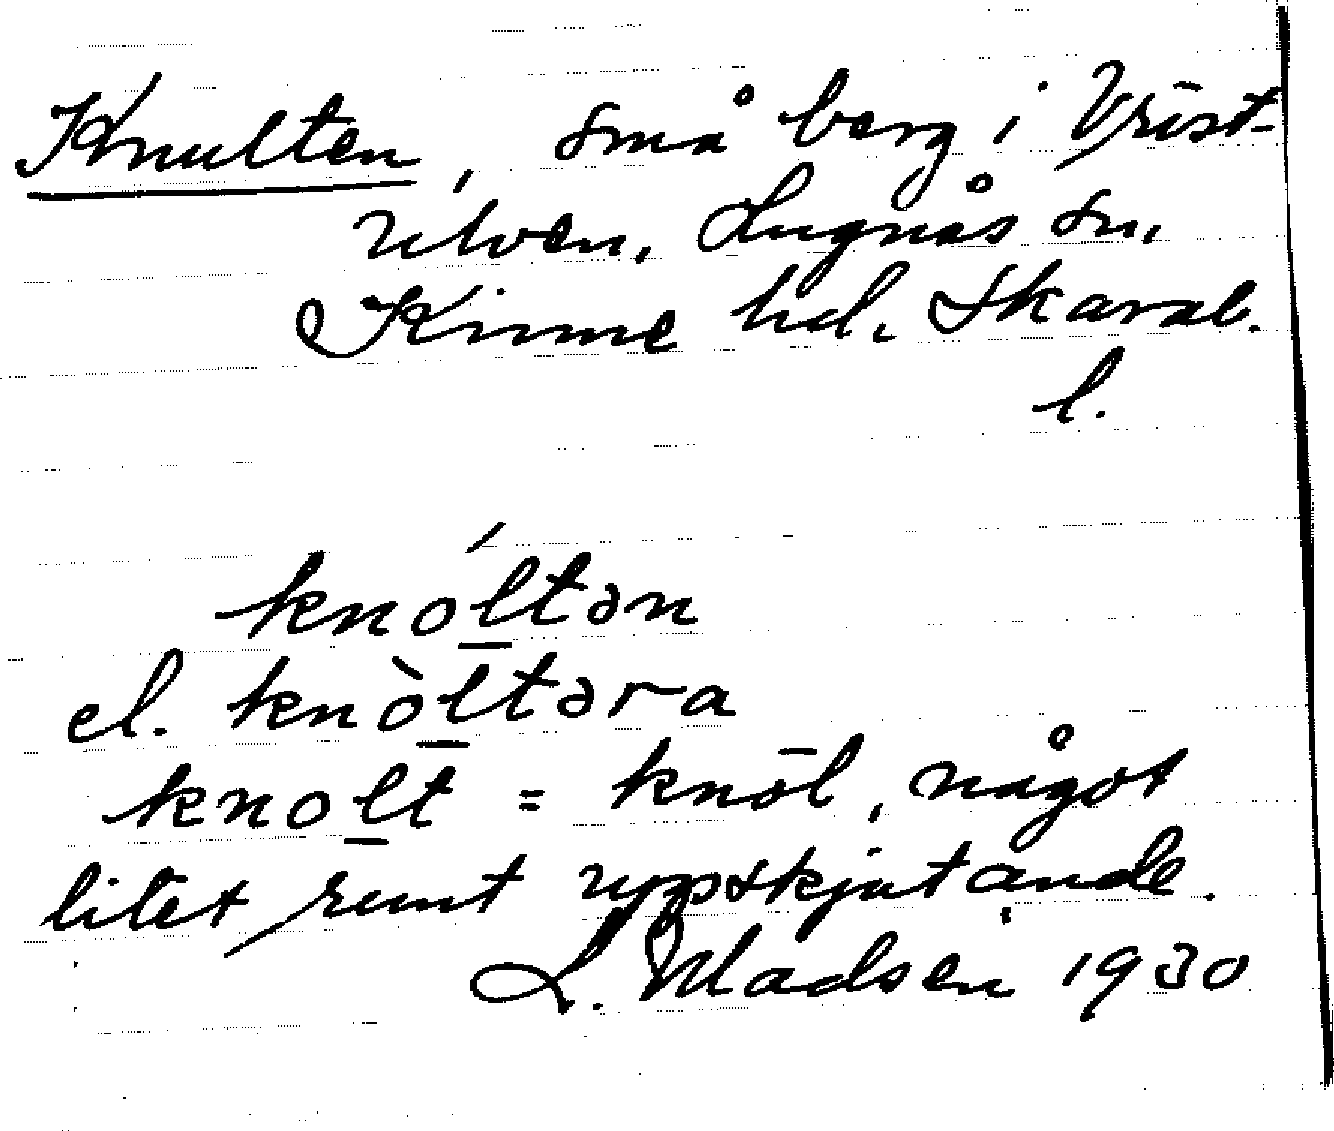 Knulten, små berg i Väst-
ulven, Lugnås sn,
Kinne hd. Skarab.
l.
knóltən
el. knòltəra
knolt = knöl, något
litet runt uppskjutande.
L. Madsén 1930